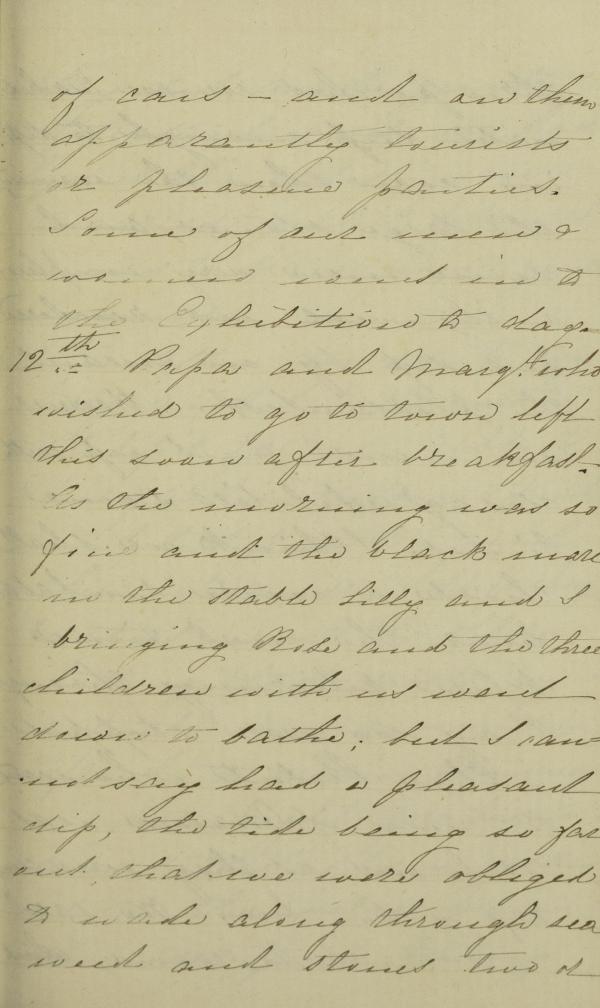 of cars — and on them
apparantly tourists
or pleasure parties.
Some of our men &
women went in to
the Exhibition to day.
12th Papa and Margt. who
wished to go to town left
this soon after breakfast.
As the morning was so
fine and the black mare
in the stable Lilly and I
bringing Rose and the three
children with us went
down to bathe; but I can
not say had a pleasant
dip, the tide being so far
out that we were obliged
to wade along through sea
weed and stones two or